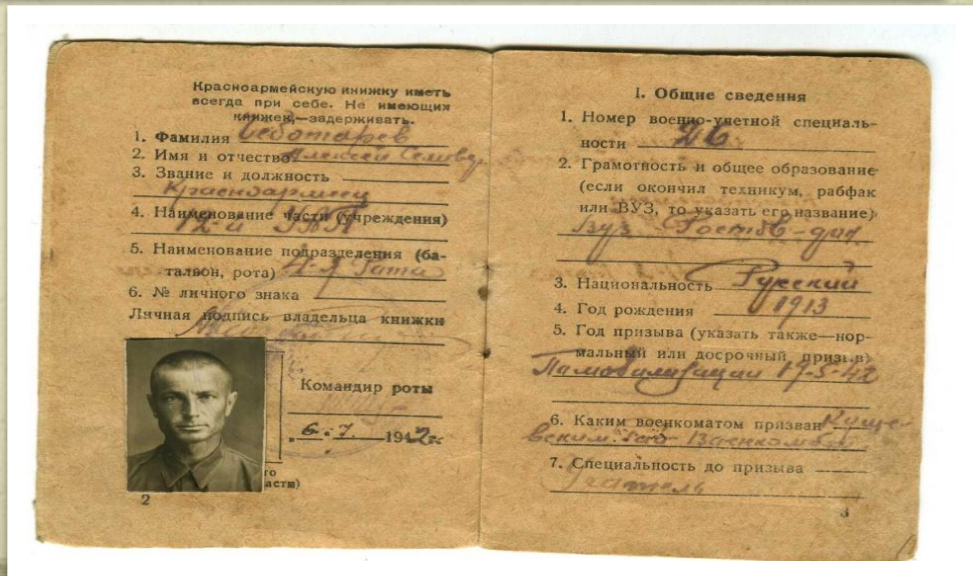 Красноармейскую книжку иметь
всегда при себе. Не имеющих
книжек,—задерживать.
1. Фамилия Чеботарев
2. Имя и отчество Алексей
3. Звание и должность
Красноармеец
4. Наименование части (учреждения)
5. Наименование подразделения (ба-
тальон, рота) 4-я Рота
6. № личного знака
Личная подпись владельца книжки
Командир роты
6. 7. 1942 г.
го
асти)
2
I. Общие сведения
1. Номер военно-учетной специаль-
ности
2. Грамотность и общее образование
(если окончил техникум, рабфак
или ВУЗ, то указать его название)
Вуз Ростов-дон
3. Национальность Русский
4. Год рождения 1913
5. Год призыва (указать также—нор-
мальный или досрочный призыв)
По мобилизации 19-5-42
6. Каким военкоматом призван Куще
вским Военкомат
7. Специальность до призыва
Учитель
3